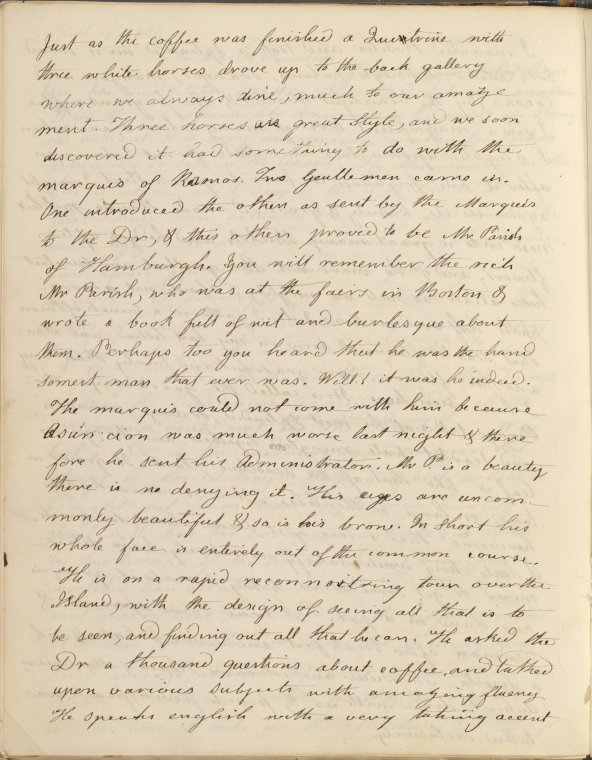 Just as the coffee was finished a Quitrine with
three white horses drove up to the back gallery
where we always dine, much to our amaze
ment. Three horses are great style, and we soon
discovered it had something to do with the
marquis of Ramos. Two Gentlemen came in.
One introduced the other as sent by the Marquis
to the Dr, & this other proved to be Mr. Parish
of Hamburgh. You will remember the rich
Mr Parish, who was at the fairs in Boston &
wrote a book full of wit and burlesque about
them. Perhaps too you heard that he was the hand
somest man that ever was. Well! it was he indeed.
The marquis could not come with him because
Asun cion was much worse last night & there
fore he sent his Administrator. Mr P. is a beauty
there is no denying it. His eyes are uncom-
monly beautiful & so is his brow. In short his
whole face is entirely out of the common course.
He is on a rapid reconnoitring tour over the
Island, with the design of seeing all that is to
be seen, and finding out all that he can. He asked the
Dr a thousand questions about coffee, and talked
upon various subjects with amazing fluency
He speaks english with a very taking accent